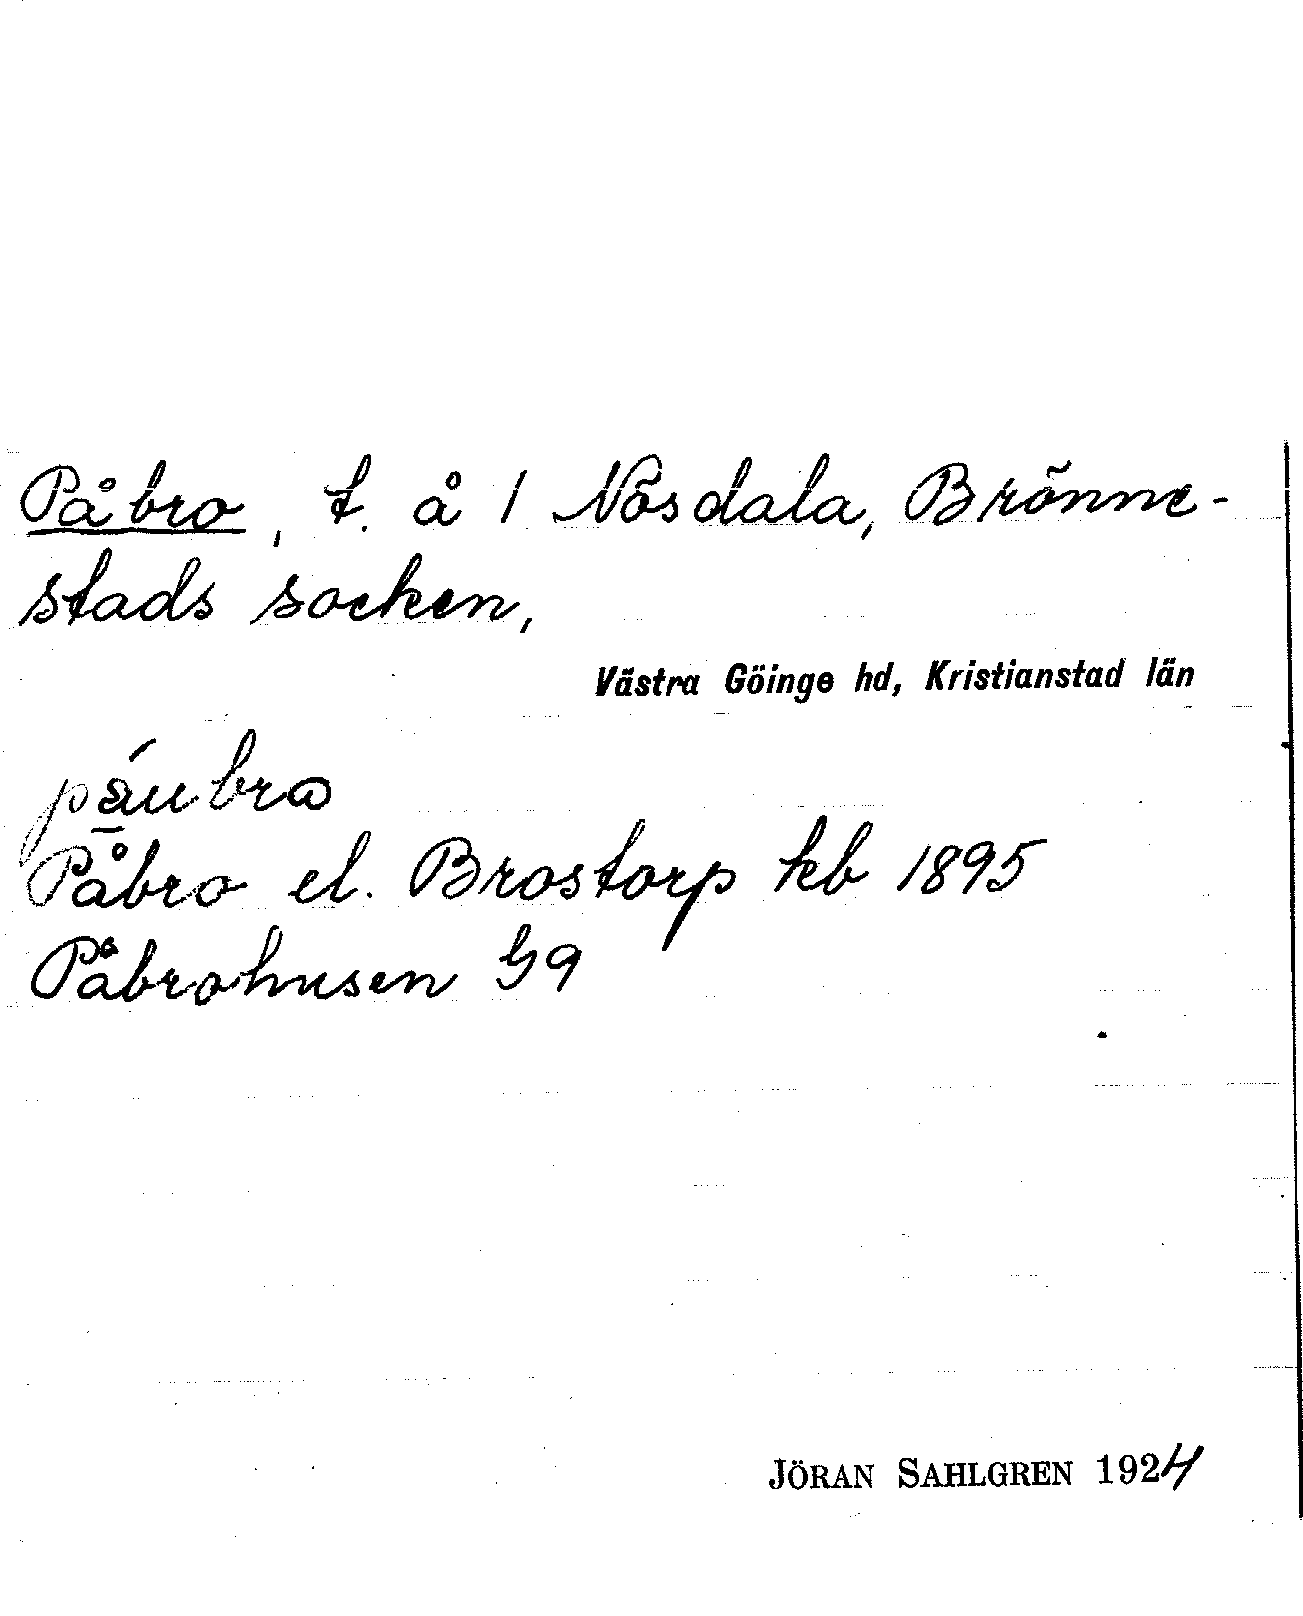 Påbro, t. å 1 Nösdala, Brönne-
stads socken,
Västra Göinge hd, Kristianstad län
páubro
Påbro el. Brostorp kb 1895
Påbrohusen G9
JÖRAN SAHLGREN 1924